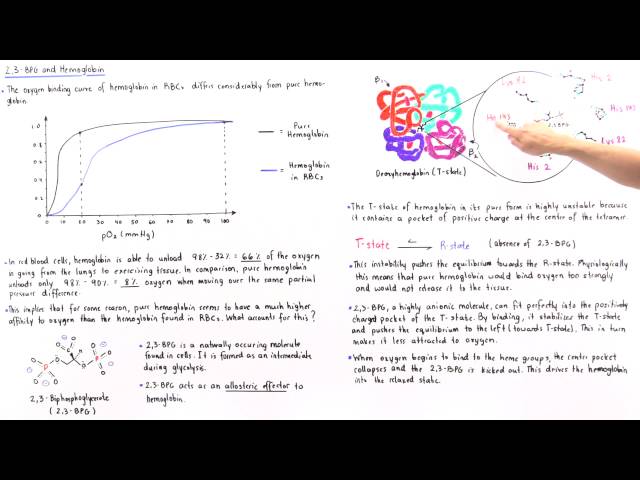 2,3-BPG and Hemoglobin
• The oxygen binding curve of hemoglobin in RBCs differs considerably from pure hemo-
globin.
1.0
0.8
0.6
0.4
0.2
0
10
20
30
40
50
60
70
80
90
100
pO2 (mmHg)
Pure
Hemoglobin
Hemoglobin
in RBCs
• In red blood cells, hemoglobin is able to unload 98% - 32% = 66% of the oxygen
is going from the lungs to exercising tissue. In comparison, pure hemoglobin
unloads only 98% - 90% = 8% oxygen when moving over the same partial
pressure difference.
• This implies that for some reason, pure hemoglobin seems to have a much higher
affinity to oxygen than the hemoglobin found in RBCs. What accounts for this?
2,3-Biphosphoglycerate
(2,3-BPG)
• 2,3-BPG is a naturally occuring molecule
found in cells. It is formed as an intermediate
during glycolysis.
• 2,3-BPG acts as an allosteric effector to
hemoglobin.
B1
B2
Deoxyhemoglobin (T-state)
Lys 82
His 2
His 143
His 143
2,3-BPG
Lys 82
His 2
• The T-state of hemoglobin in its pure form is highly unstable because
it contains a pocket of positive charge at the center of the tetramer.
T-state R-state (absence of 2,3-BPG)
• This instability pushes the equilibrium towards the R-state. Physiologically
this means that pure hemoglobin would bind oxygen too strongly
and would not release it to the tissue.
• 2,3-BPG, a highly anionic molecule, can fit perfectly into the positively
charged pocket of the T-state. By binding, it stabilizes the T-state
and pushes the equilibrium to the left (towards T-state). This in turn
makes it less attracted to oxygen.
• When oxygen begins to bind to the heme groups, the center pocket
collapses and the 2,3-BPG is kicked out. This drives the hemoglobin
into the relaxed state.